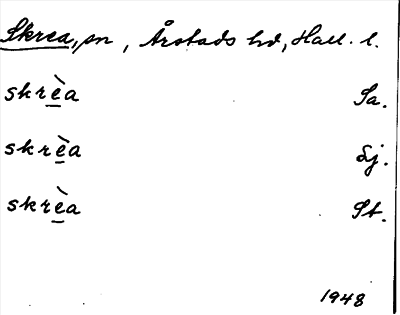 Skrea, sn, Årstads hd, Hall. l.
skrè̱a Sa.
skrè̱a Sj.
skrè̱a St.
1948